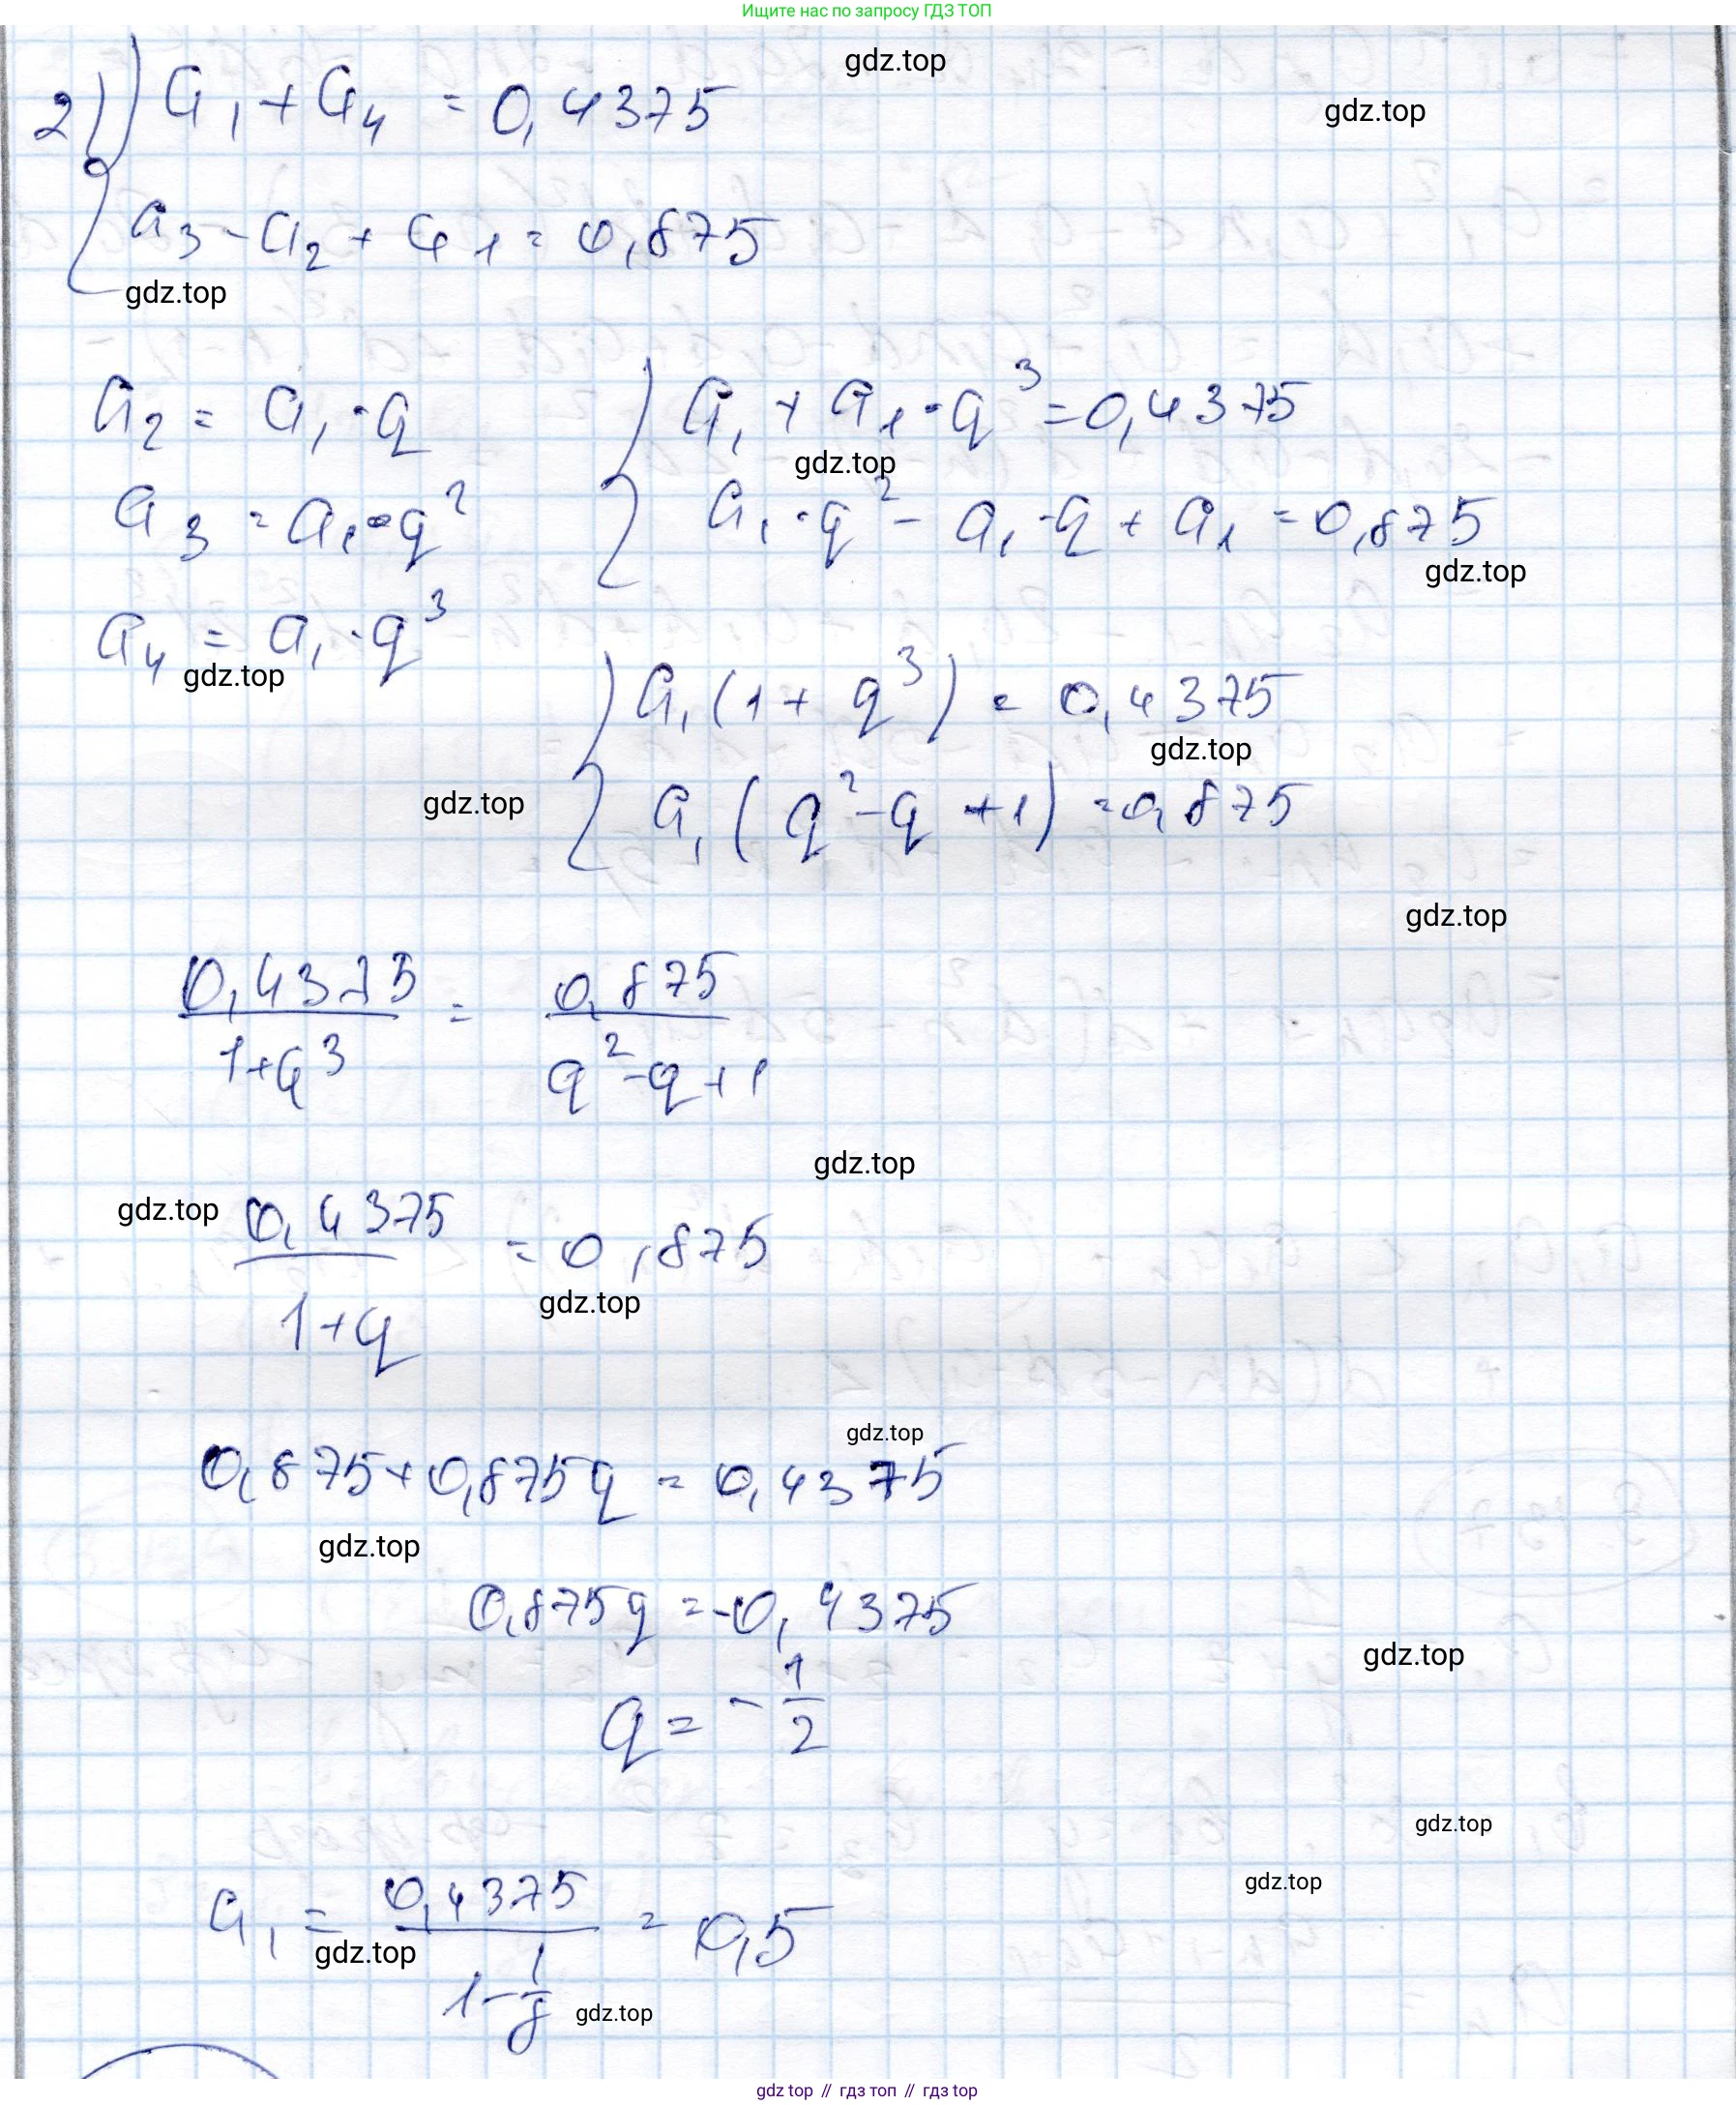 Ищите нас по запросу ГДЗ ТОП
gdz.top
2) { a₁ + a₄ = 0,4375
gdz.top
a₃ - a₂ + a₁ = 0,875
gdz.top
a₂ = a₁ · q
{ a₁ + a₁ · q³ = 0,4375
gdz.top
a₃ = a₁ · q²
a₁ · q² - a₁ · q + a₁ = 0,875
gdz.top
a₄ = a₁ · q³
gdz.top
{ a₁ (1 + q³) = 0,4375
gdz.top
gdz.top
a₁ (q² - q + 1) = 0,875
gdz.top
0,4375 / 1+q³ = 0,875 / q² - q + 1
gdz.top
gdz.top
0,4375 / 1+q = 0,875
gdz.top
gdz.top
0,875 + 0,875q = 0,4375
gdz.top
0,875q = -0,4375
gdz.top
q = - 1/2
gdz.top
gdz.top
a₁ = 0,4375 / 1 - 1/8 = 0,5
gdz.top
gdz.top
gdz top // гдз топ // гдз top